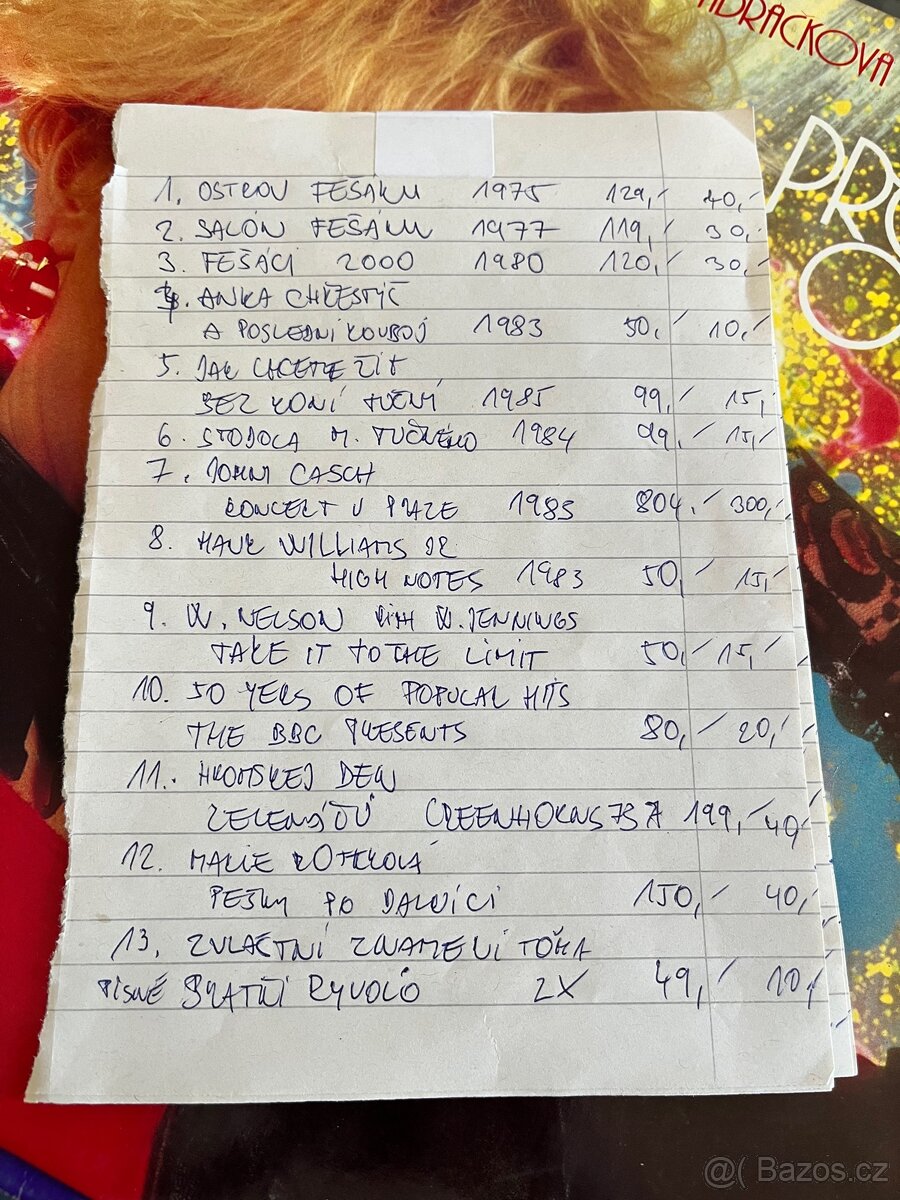 ADRAČKOVA
PRO
O
1. OSTROV FEŠÁKU 1975 129,- 40,-
2. SALÓN FEŠÁKU 1977 119,- 30,-
3. FEŠÁCI 2000 1980 120,- 30,-
4. ANKA CHŘESTÝŠ
A POSLEDNÍ KOUBOJ 1983 50,- 10,-
5. JAK CHCETE ŽÍT
BEZ KONÍ TUČNÝ 1985 99,- 15,-
6. STODOLA M. TUČNÉHO 1984 99,- 15,-
7. JOHNI CASCH
KONCERT V PRAZE 1983 804,- 300,-
8. HANK WILLIAMS JR
HIGH NOTES 1983 50,- 15,-
9. W. NELSON WITH W. JENNINGS
TAKE IT TO THE LIMIT 50,- 15,-
10. 50 YERS OF POPULAR HITS
THE BBC PRESENTS 80,- 20,-
11. HROMSKEJ DEN
ZELENÁČŮ GREENHORNS 199,- 40,-
12. MARIE ROTTROVÁ
PĚŠKY PO DÁLNICI 150,- 40,-
13. ZVLÁŠTNÍ ZNAMENÍ TOUHA
PÍSNĚ BRATŘÍ RYVOLŮ 2X 49,- 10,-
@( Bazos.cz